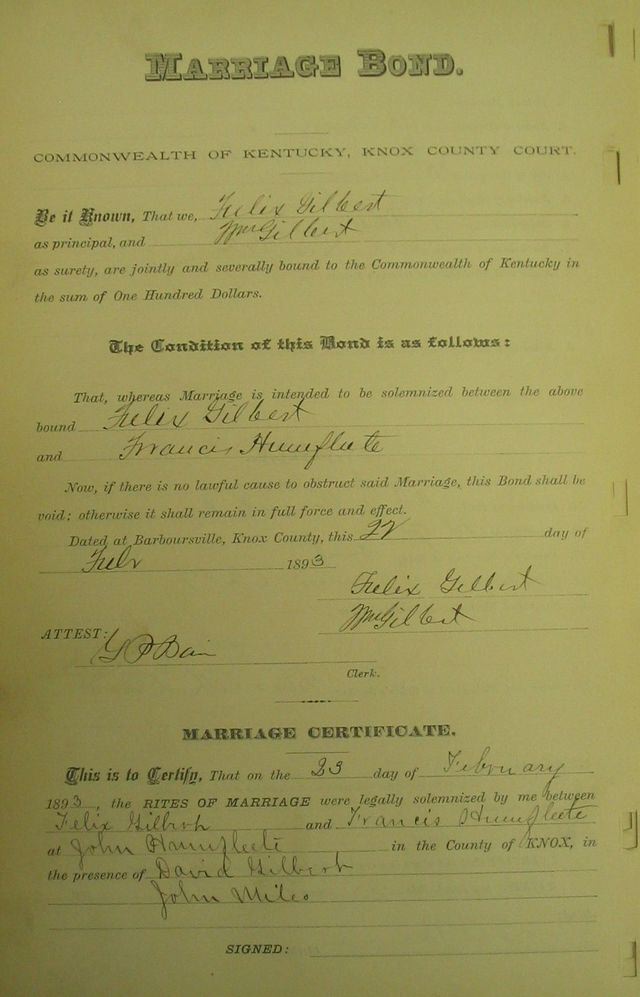 MARRIAGE BOND.
COMMONWEALTH OF KENTUCKY, KNOX COUNTY COURT.
Be it Known, That we, Felix Gilbert
as principal, and Wm Gilbert
as surety, are jointly and severally bound to the Commonwealth of Kentucky in
the sum of One Hundred Dollars.
The Condition of this Bond is as follows:
That, whereas Marriage is intended to be solemnized between the above
bound Felix Gilbert
and Francis Humfleete
Now, if there is no lawful cause to obstruct said Marriage, this Bond shall be
void; otherwise it shall remain in full force and effect.
Dated at Barboursville, Knox County, this 22 day of
Feb 1893
Felix Gilbert
Wm Gilbert
ATTEST:
Clerk.
MARRIAGE CERTIFICATE.
This is to Certify, That on the 23 day of February
1893, the RITES OF MARRIAGE were legally solemnized by me between
Felix Gilbert and Francis Humfleete
at John Humfleete in the County of KNOX, in
the presence of David Gilbert
John Miles
SIGNED: